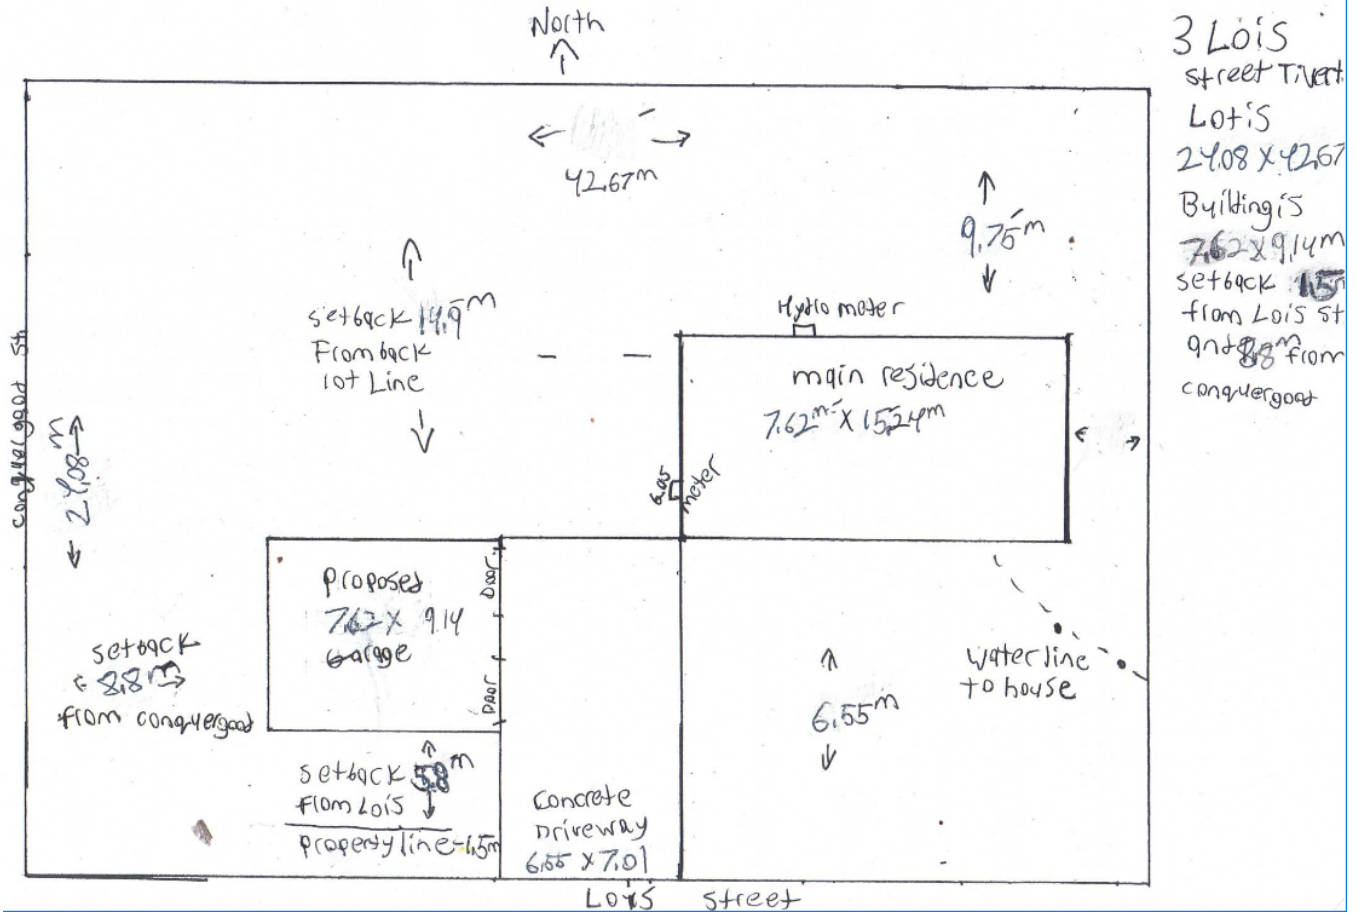 North
42.67m
9.75m
setback 14.9m
From back
lot Line
Hydro meter
main residence
7.62m X 15.24m
meter
conquergood St
24.08m
proposed
7.62 X 9.14
Garage
Door
Door
setback
8.8m
from conquergood
setback 5.8m
from Lois
property line - 1.5m
Concrete
Driveway
6.55 X 7.01
6.55m
water line
to house
Lois Street
3 Lois
street Tivert
Lot is
24.08 X 42.67
Building is
7.62 X 9.14m
setback 1.5m
from Lois St
and 8.8m from
conquergood